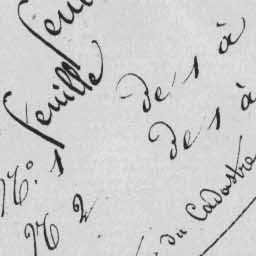 N.° 1 feuille de 1 à
N 2 feuille de 1 à
du Cadastre